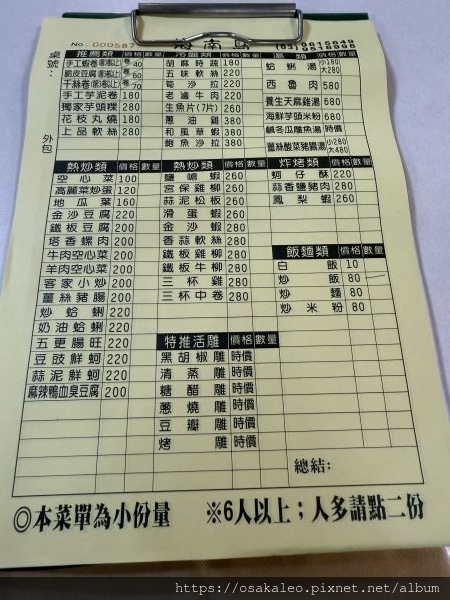 No: 000587
海南
桌號:
外包
推薦類 價格 數量
手工蝦卷 40
脆皮豆腐 60
千絲卷 70
手工芋泥卷 180
獨家芋頭粿 280
花枝丸燒 180
上品軟絲 280
冷盤類 價格 數量
胡麻時蔬 180
五味軟絲 220
筍沙拉 220
老滷牛肉 220
生魚片(7片) 260
蔥油雞 380
和風草蝦 380
鮑魚沙拉 380
湯類 價格 數量
蛤蜊湯 小180 大280
西魯肉 580
養生天麻雞湯 680
海鮮芋頭米粉 680
鹹冬瓜雕魚湯 時價
薑絲酸菜豬腸湯 小280 大480
熱炒類 價格 數量
空心菜 100
高麗菜炒蛋 120
地瓜葉 160
金沙豆腐 220
鐵板豆腐 200
塔香螺肉 200
牛肉空心菜 200
羊肉空心菜 200
客家小炒 200
薑絲豬腸 200
炒蛤蜊 220
奶油蛤蜊 220
五更腸旺 220
豆豉鮮蚵 220
蒜泥鮮蚵 220
麻辣鴨血臭豆腐 200
熱炒類 價格 數量
鹽嗆蝦 260
宮保雞柳 260
蒜泥松板 260
滑蛋蝦 260
金沙蝦 280
香蒜軟絲 280
鐵板雞柳 280
鐵板牛柳 280
三杯雞 280
三杯中卷 280
特推活雕 價格 數量
黑胡椒雕 時價
清蒸雕 時價
糖醋雕 時價
蔥燒雕 時價
豆瓣雕 時價
烤雕 時價
炸烤類 價格 數量
蚵仔酥 220
蒜香鹽豬肉 280
鳳梨蝦 260
飯麵類 價格 數量
白飯 10
炒飯 80
炒麵 80
炒米粉 80
總結:
◎本菜單為小份量 ※6人以上;人多請點二份
https://osakaleo.pixnet.net/album